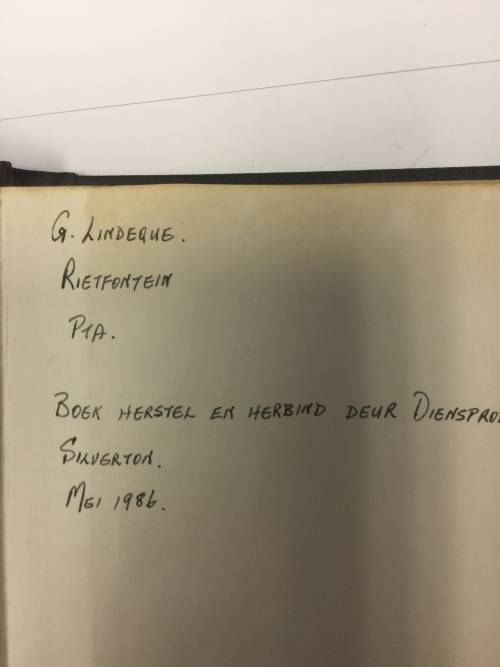 G. LINDEQUE.
RIETFONTEIN
PTA.
BOEK HERSTEL EN HERBIND DEUR DIENSPROD
SILVERTON.
MEI 1986.